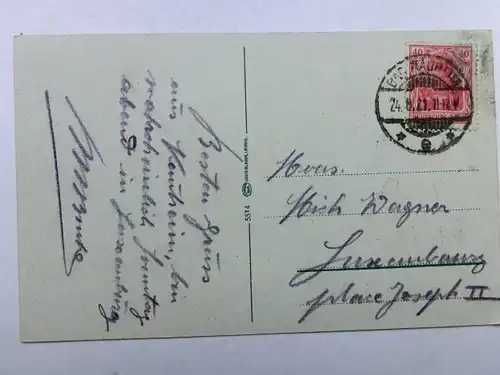 Besten Gruss
aus Nauheim, bin
wahrscheinlich Sonntag
abend in Luxemburg
5514
40 40
BAD-NAUHEIM
24. 21. 11-12 V
Mons.
Mich Wagner
Luxembourg
place Joseph II